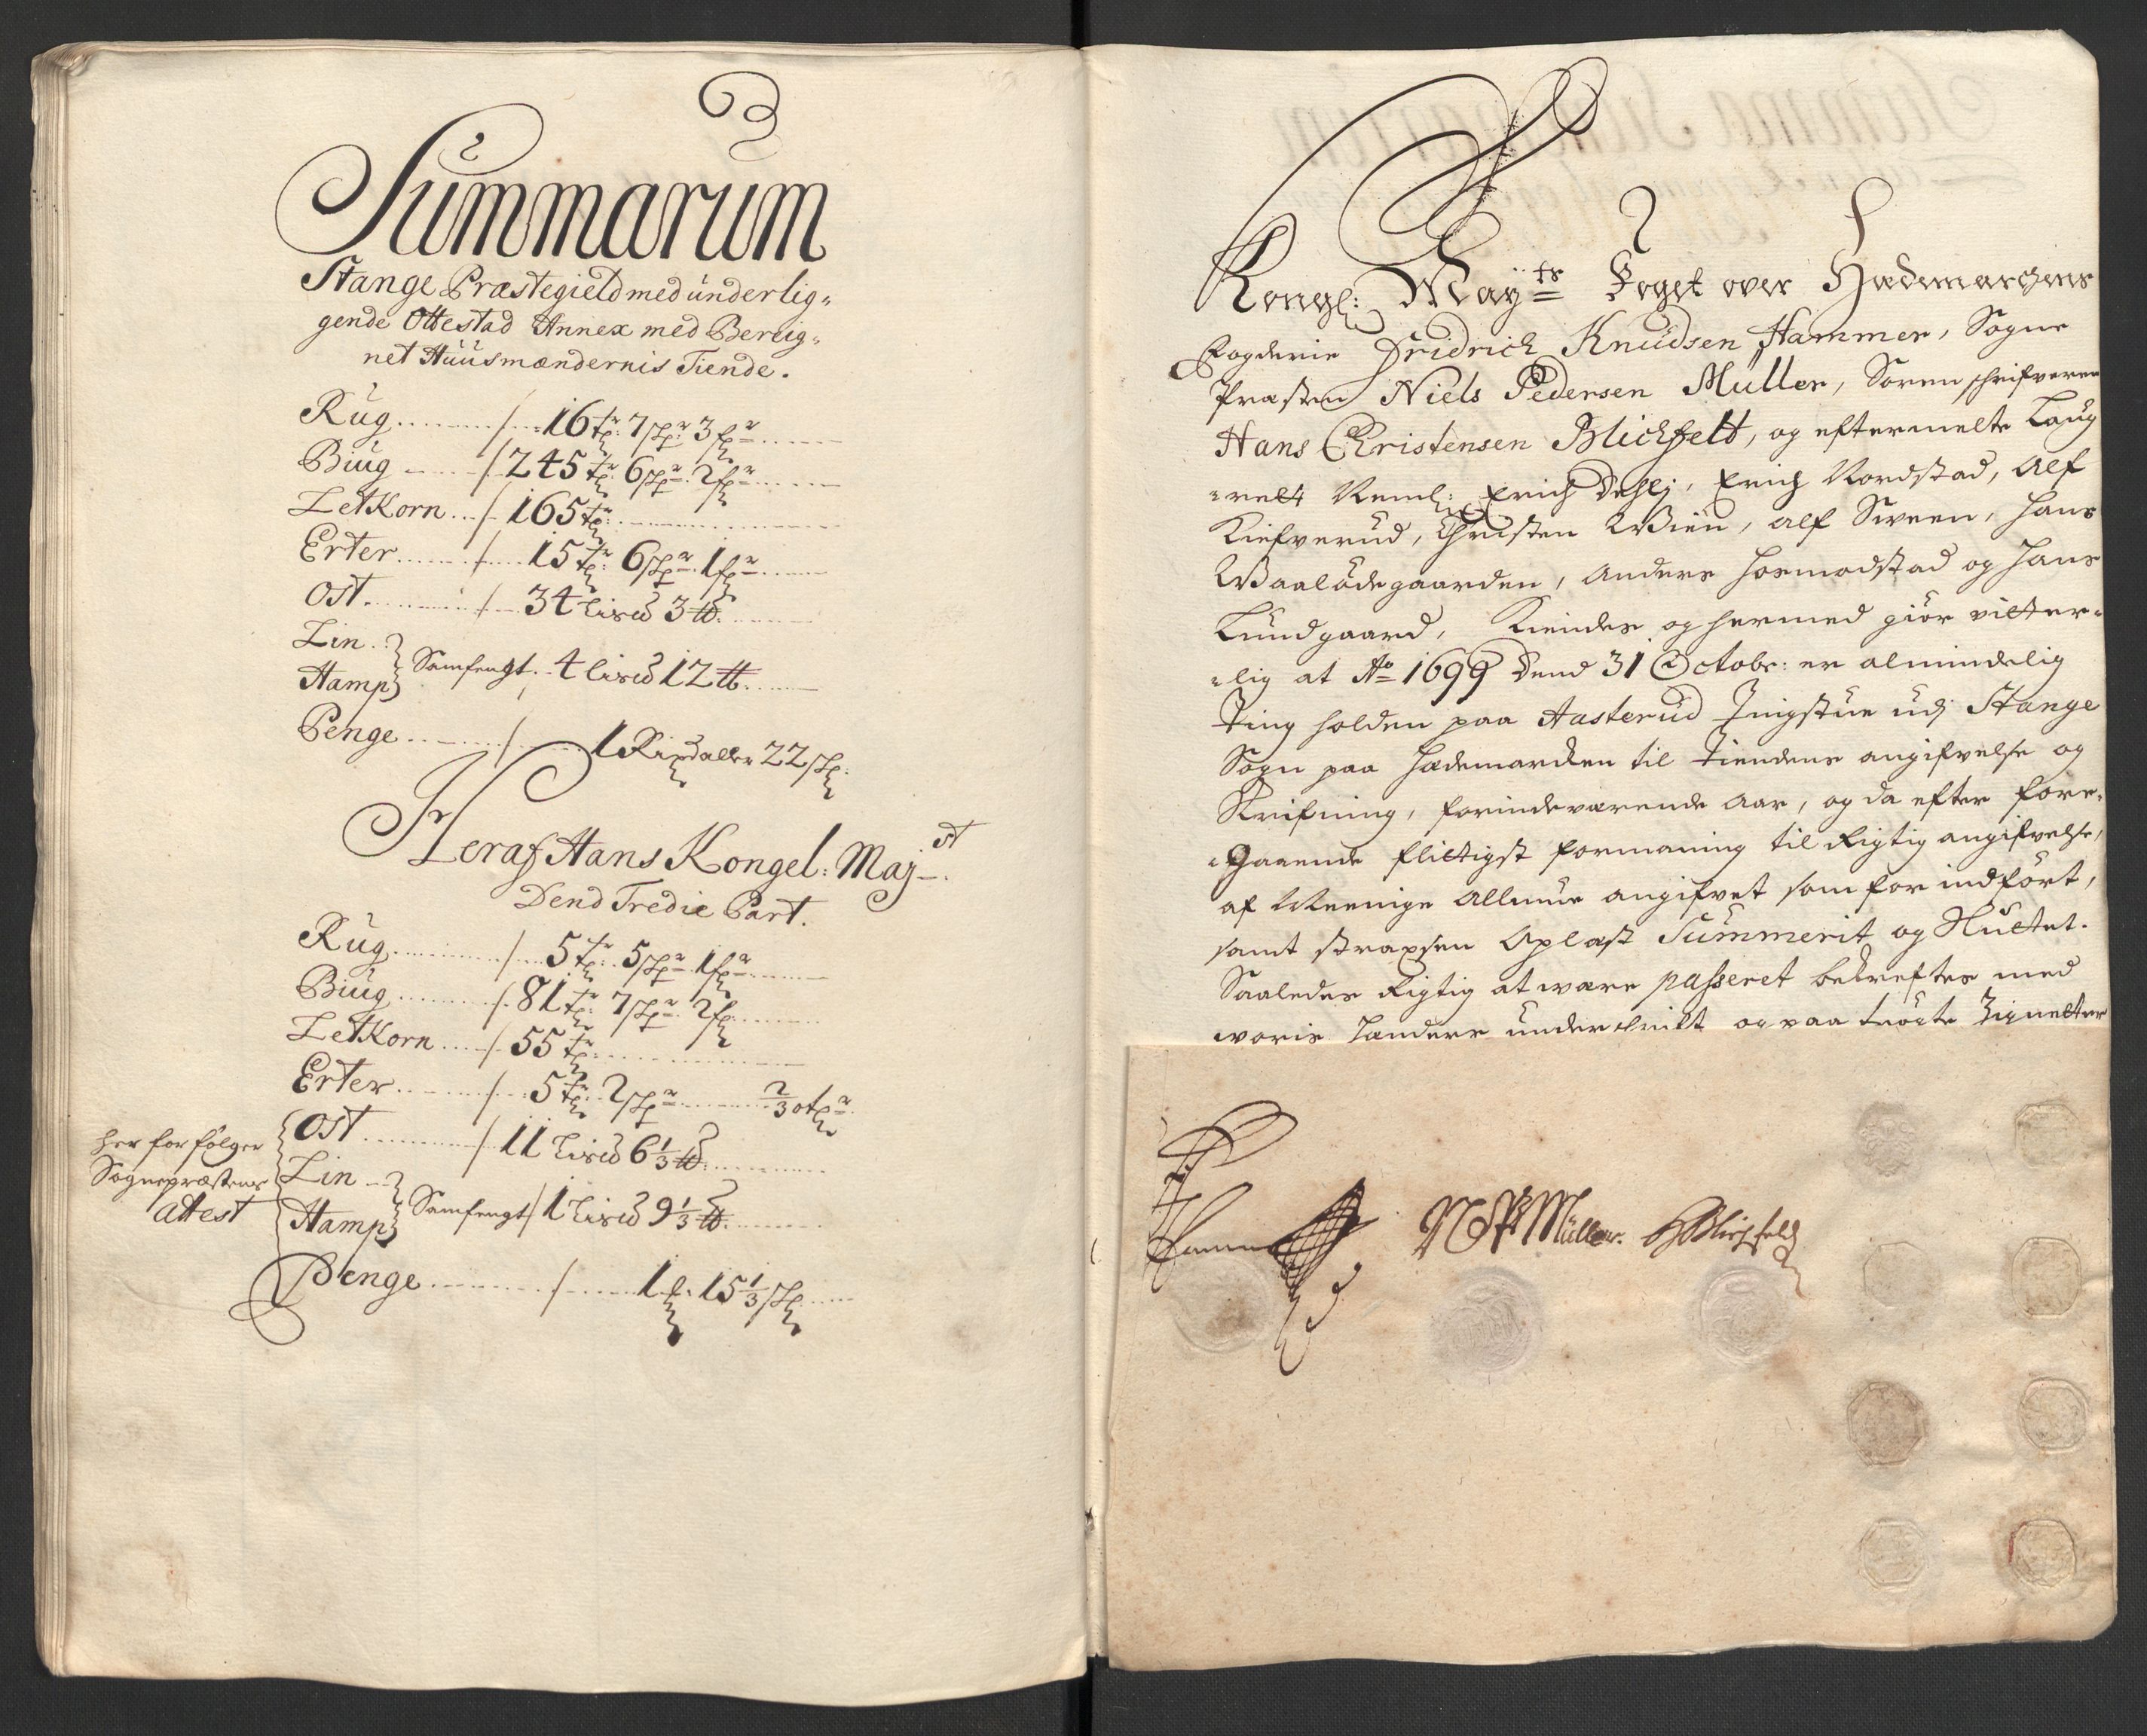 Summarum
Stange Præstegield med underlig„
gende Ottestad Annex med Bereig„
net Huusmændernis Tiende.
Rug / 16 tr: 7 shpr: 3 fr
Biug / 245 tr: 6 shpr: 2 fr
LetKorn / 165 tr:
Erter / 15 tr: 6 shpr: 1 fr
Ost / 34 lispd 3 ℔.
Lin
Hamp } Samfengt. 4 lispd 12 ℔.
Penge / 1 Rixdaller 22 sh:
Heraf Hans Kongel: Majst.
Dend Tredie Part.
Rug / 5 tr: 5 shpr 1 fr
Biug / 81 tr: 7 shpr 2 f:
LetKorn / 55 tr:
Erter / 5 tr: 2 shpr 2/3 otr
Ost / 11 Lispd 6 1/3 ℔.
Lin
Hamp } Samfengt / 1 Lispd 9 1/3 ℔.
Penge / 1 15 1/3 sh
her for følger
Sognepræstens
Attest
Kongl: Mayts Foget over Hedemarchens
Fogderie Fridrich Knudsen Hammer, Sogne
Præsten Niels Pedersen Muller, Sorenschrifveren
Hans Christensen Blichfeldt, og eftermelte Laug
„rett Neml: Erich Erich Nordstad, Alf
Kiefverud, Christen Wien, Alf Sween, Hans
Waalødegaarden, Anders Hosmodstad og Hans
Lundgaard, Kiendes og hermed giør vitter„
„lig at Ao 1699 Dend 31 Octobr: er almindelig
Ting holden paa Aasterud Tingstue udj Stange
Sogn paa Hedemarcken til Tiendens angifvelse og
Skrifning, for indeværende Aar, og da efter fore„
„gaaende flittigst formaning til Rigtig angifvelse,
af Meenige Allmue angifvet som for indført,
samt strax opläst Summerit og Sluttet.
Saaledes Rigtig at være passeret bekreftes med
voris Hænders underskrift og paa trøgte Zignetter
Hammer
NP Müller. H Blichfeldt